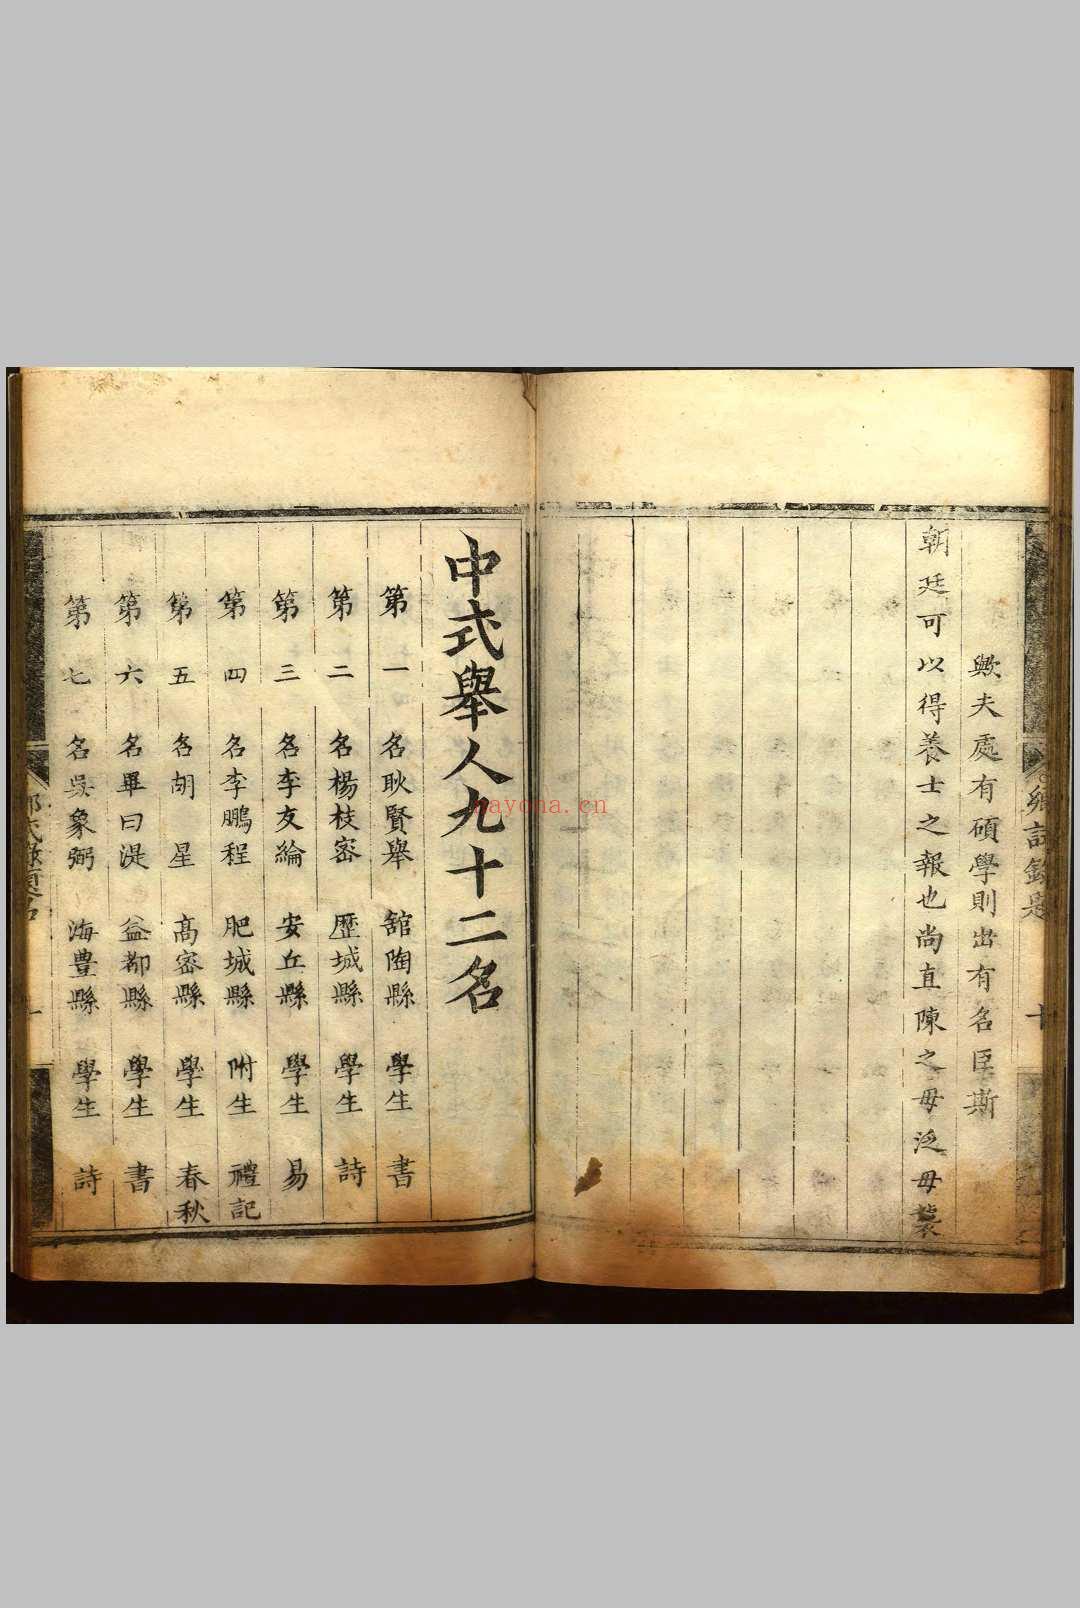 歟夫處有碩學則出有名臣斯
朝廷可以得養士之報也尚直陳之毋泛毋襲
鄉試錄
十
中式舉人九十二名
第一名耿賢舉 舘陶縣 學生 書
第二名楊枝密 歷城縣 學生 詩
第三名李友綸 安丘縣 學生 易
第四名李鵬程 肥城縣 附生 禮記
第五名胡星 高密縣 學生 春秋
第六名畢曰湜 益都縣 學生 書
第七名吳象弼 海豊縣 學生 詩
nayona.cn